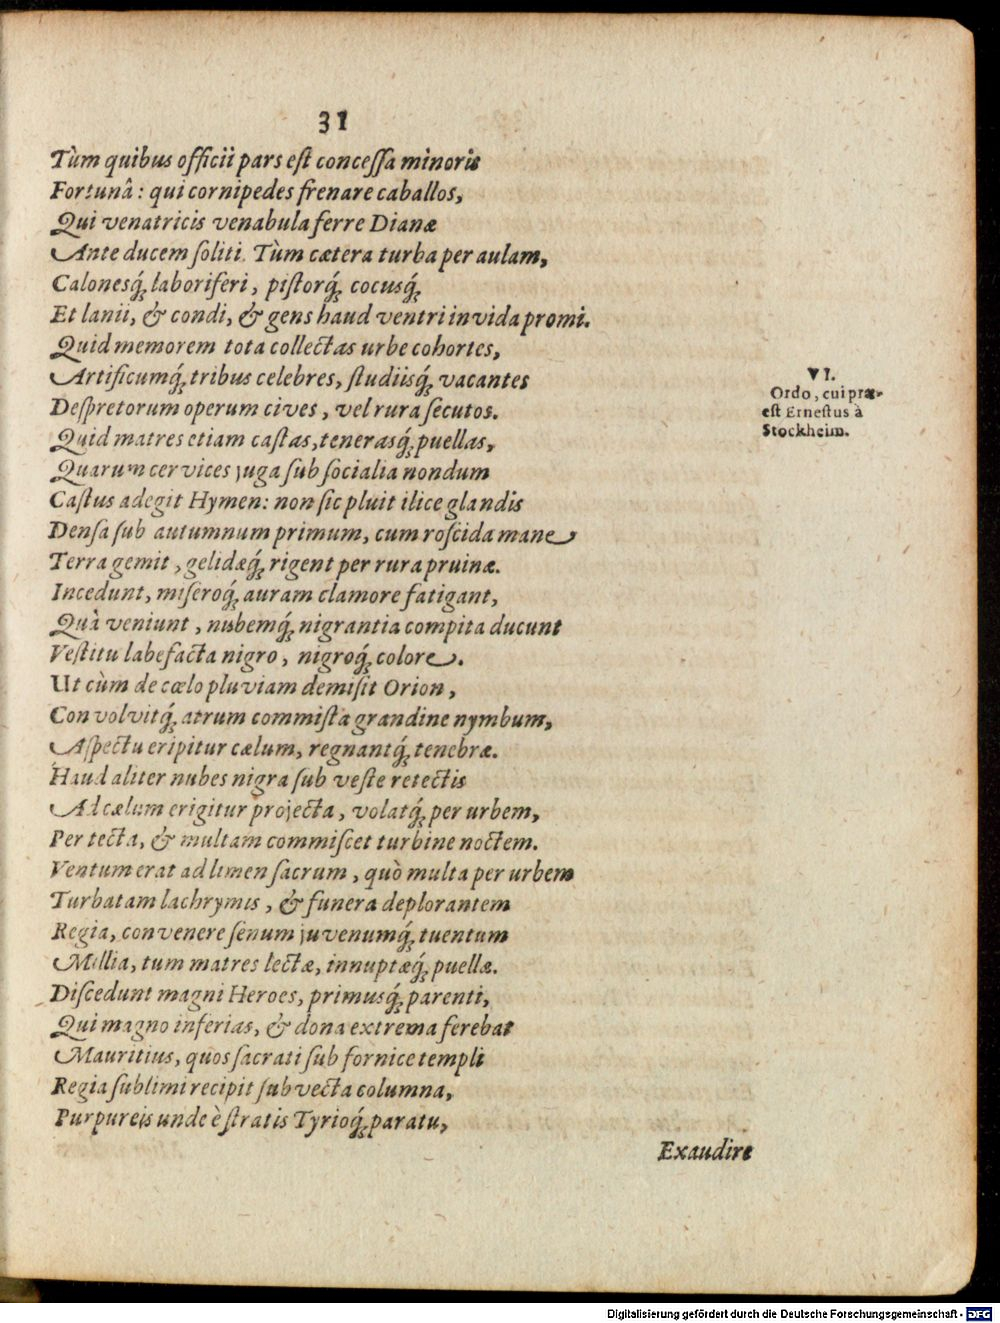 31
Tùm quibus officii pars eſt conceſſa minoris
Fortunâ: qui cornipedes frenare caballos,
Qui venatricis venabula ferre Dianæ
Ante ducem ſoliti. Tùm cætera turba per aulam,
Calonesq́; laboriferi, piſtorq́; cocusq́;
Et lanii, & condi, & gens haud ventri invida promi.
Quid memorem tota collectas urbe cohortes,
Artificumq́; tribus celebres, ſtudiisq́; vacantes
Deſpretorum operum cives, vel rura ſecutos.
Quid matres etiam caſtas, tenerasq́; puellas,
Quarum cervices juga ſub ſocialia nondum
Caſtus adegit Hymen: non ſic pluit ilice glandis
Denſa ſub autumnum primum, cum roſcida mane
Terra gemit, gelidæq́; rigent per rura pruinæ.
Incedunt, miſeroq́; auram clamore fatigant,
Quà veniunt, nubemq́; nigrantia compita ducunt
Veſtitu labefacta nigro, nigroq́; colore.
Ut cùm de cœlo pluviam demiſit Orion,
Convolvitq́; atrum commiſta grandine nymbum,
Aſpectu eripitur cælum, regnantq́; tenebræ.
Haud aliter nubes nigra ſub veſte retectis
Ad cælum erigitur projecta, volatq́; per urbem,
Per tecta, & multam commiſcet turbine noctem.
Ventum erat ad limen ſacrum, quò multa per urbem
Turbatam lachrymis, & funera deplorantem
Regia, convenere ſenum juvenumq́; tuentum
Millia, tum matres lectæ, innuptæq́; puellæ.
Diſcedunt magni Heroes, primusq́; parenti,
Qui magno inferias, & dona extrema ferebat
Mauritius, quos ſacrati ſub fornice templi
Regia ſublimi recipit ſubvecta columna,
Purpureis unde è ſtratis Tyrioq́; paratu,
Exaudire
VI.
Ordo, cui præ-
eſt Erneſtus à
Stockheim.
Digitalisierung gefördert durch die Deutsche Forschungsgemeinschaft - DFG